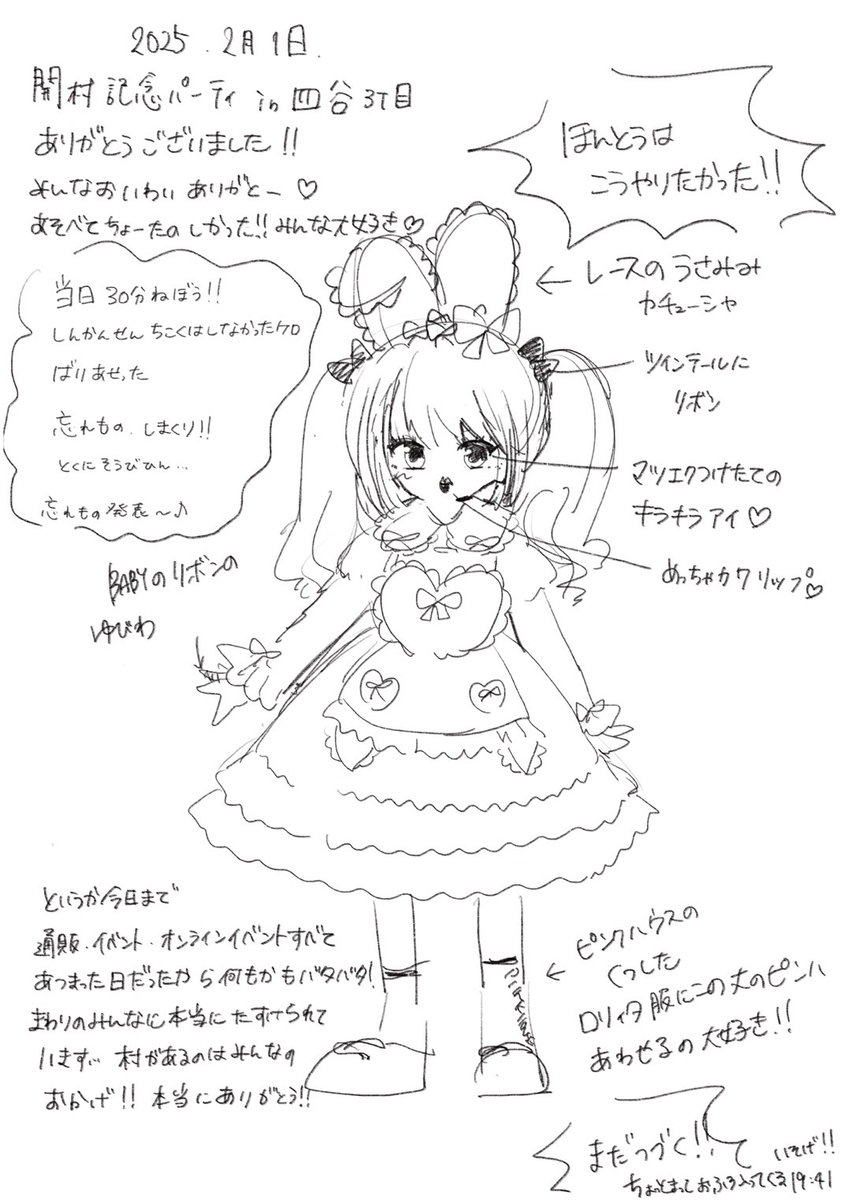 2025.2月1日.
開村記念パーティ in 四谷3丁目
ありがとうございました!!
みんなおいわい ありがとー♡
あそべてちょーたのしかった!! みんな大好き♡
ほんとうは
こうやりたかった!!
当日 30分ねぼう!!
しんかんせん ちこくはしなかったケロ
ばりあせった
忘れもの しまくり!!
とくにそうびひん...
忘れもの発表〜♪
← レースのうさみみ
カチューシャ
ツインテールに
リボン
マツエクつけたての
キラキラアイ♡
めっちゃカワリップ♡
BABYのリボンの
ゆびわ
というか今日まで
通販・イベント・オンラインイベントすべて
あつまった日だったから何もかもバタバタ!
まわりのみんなに本当にたすけられて
います… 村があるのはみんなの
おかげ!! 本当にありがとう!!
← ピンクハウスの
くつした
ロリィタ服にこの丈のピンハ
あわせるの大好き!!
まだつづく!!
いそげ!!
ちょっとまっておふろ入ってくる 19:41